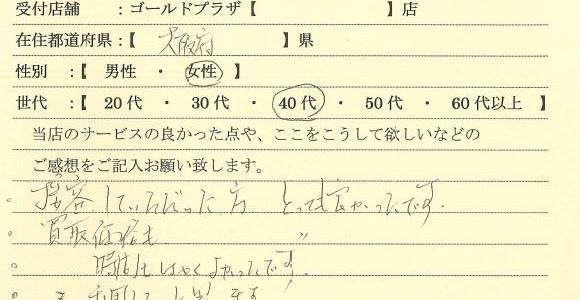 受付店舗　：ゴールドプラザ【　　　　　　　　】店
在住都道府県：【　大阪府　　　　】県
性別　：【　男性　・　女性　】
世代　：【　20代　・　30代　・　40代　・　50代　・　60代以上　】
当店のサービスの良かった点や、ここをこうして欲しいなどの
ご感想をご記入お願い致します。
。接客していただいた方　とっても良かったです.
。買取価格も　　　　　〃
。時間もはやくよかったです!
。利用し